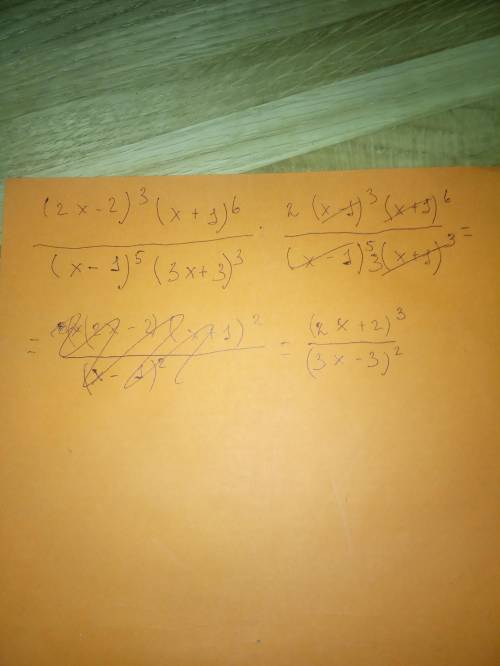 (2x-2)^3 (x+1)^6 / (x-1)^5 (3x+3)^3 · 2(x-1)^3 (x+1)^6 / (x-1)^5 3(x+1)^3 =
= (2x-2)(x+1)^2 / (x-1)^2 = (2x+2)^3 / (3x-3)^2